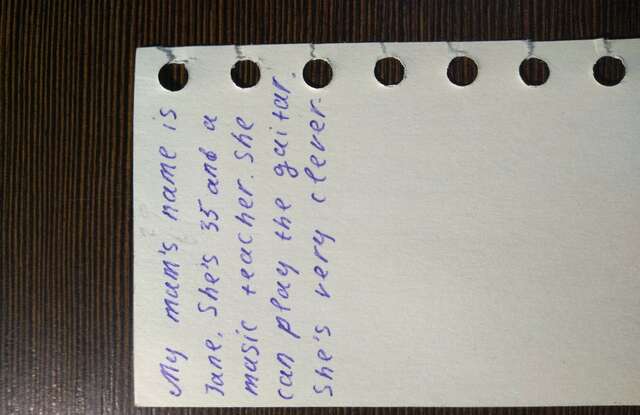 My mum's name is
Jane. She's 35 and a
music teacher. She
can play the guitar.
She's very clever.